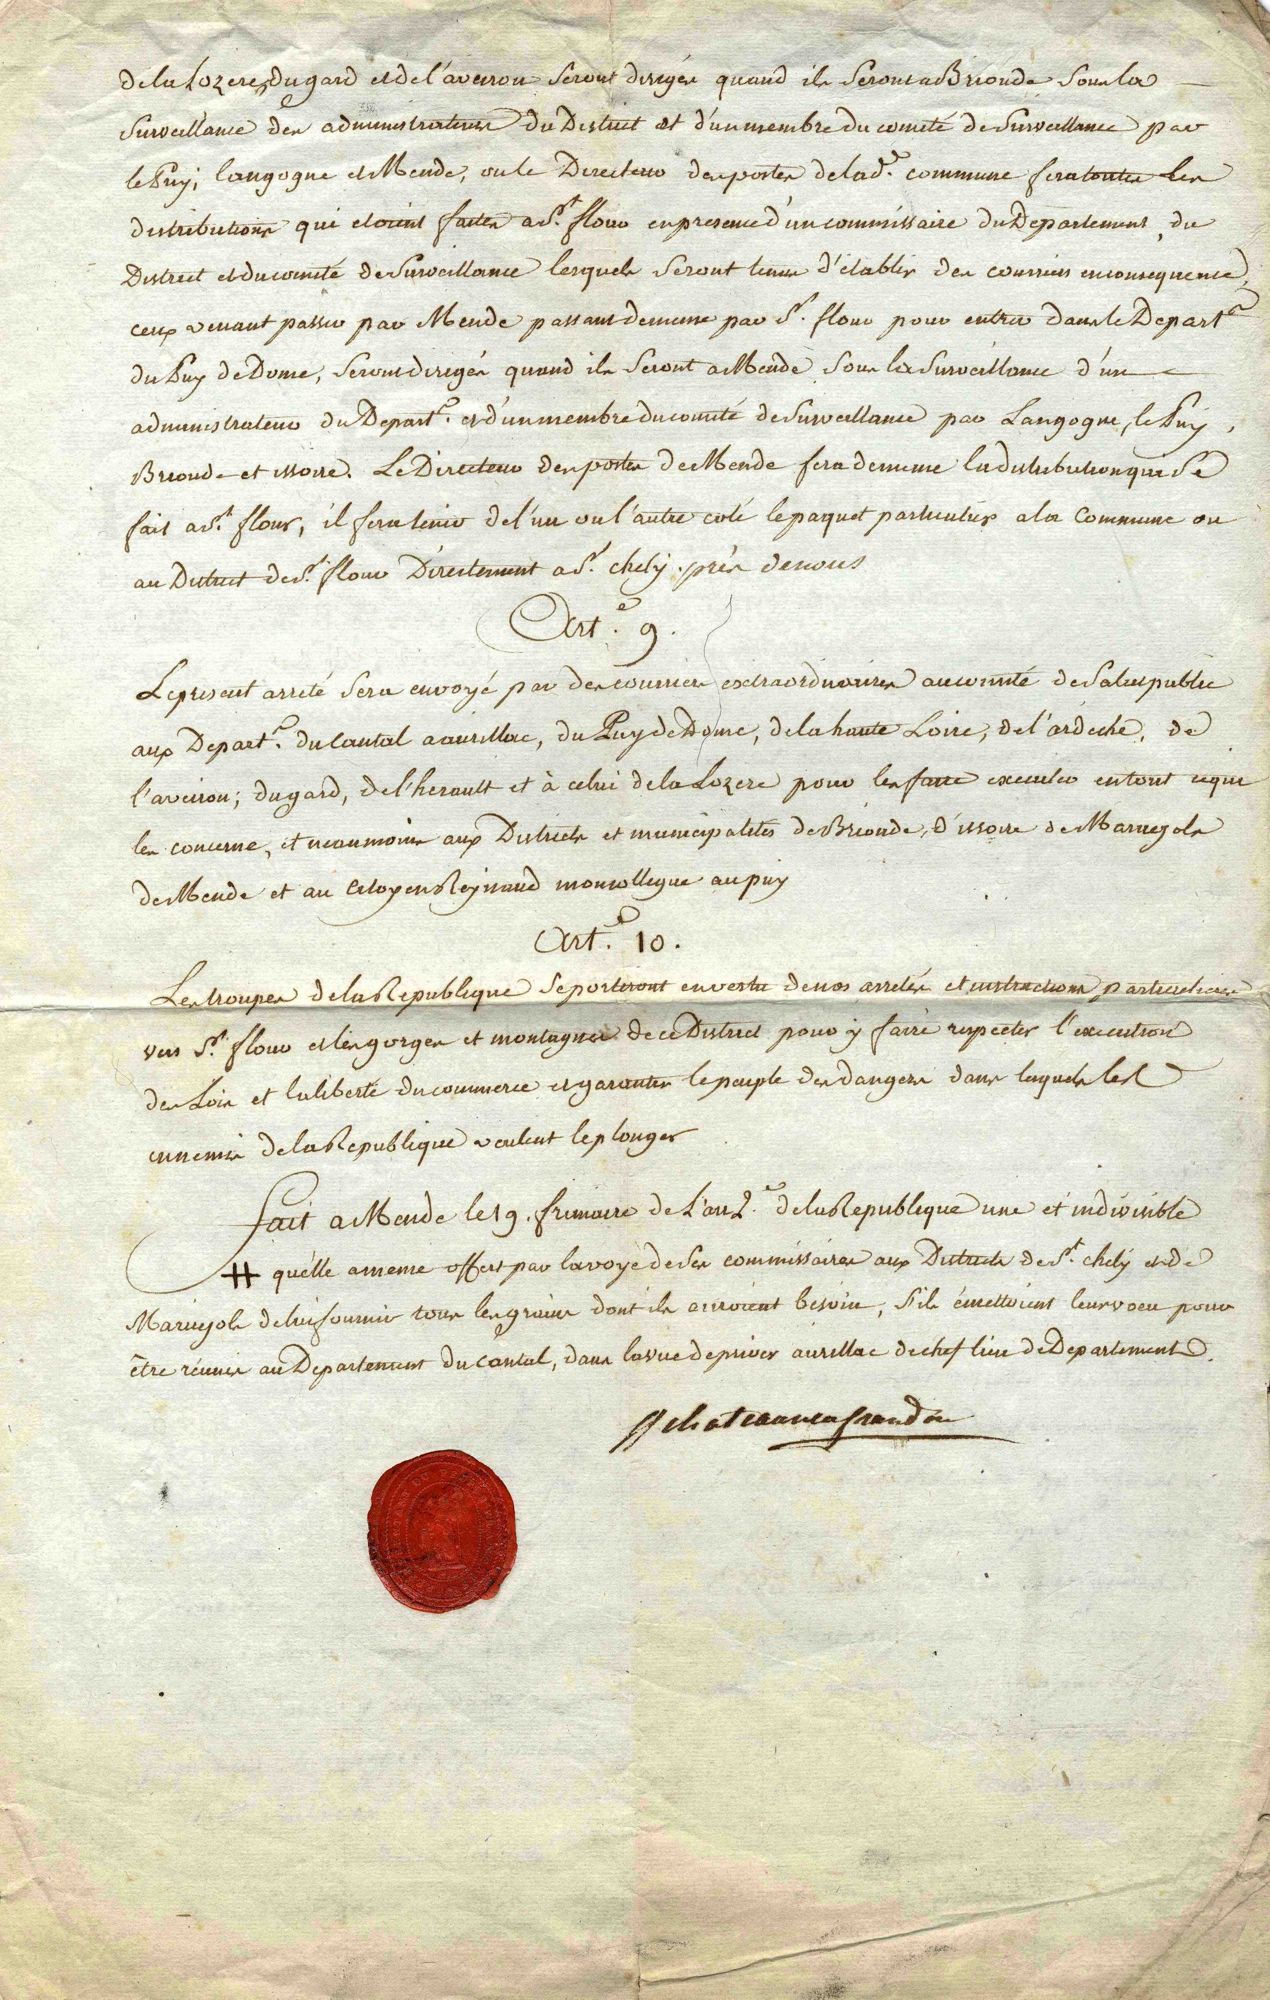 de la Lozere, du gard et de l'aveiron seront dirigés quand ils seront a Brioude sous la
surveillance des administrateurs du District et d'un membre du comité de surveillance par
le Puy, langogne et Mende, ou le Directeur des postes de lad.e commune fera toutes les
distributions qui etoient faites a St. flour en presence d'un commissaire du Departement, du
District et du comité de surveillance lesquels seront tenus d'établir des courriers en consequence,
ceux venant passer par Mende passant de meme par St. flour pour entrer dans le Depart.t
du Puy de Dome, seront dirigés quand ils seront a Mende sous la surveillance d'un
administrateur du Depart.t et d'un membre du comité de surveillance par Langogne, le Puy,
Brioude et issoire. Le Directeur des postes de Mende fera de meme la distribution qui se
fait a St. flour, il fera tenir de l'un ou l'autre coté le paquet particulier a la commune ou
au District de St. flour Directement a St. chely près de nous
Art.e 9.
Le present arreté sera envoyé par des courriers extraordinaires au comité de Salut public
aux Depart.ts du Cantal a aurillac, du Puy de Dome, de la haute Loire, de l'ardeche, de
l'aveiron, du gard, de l'herault et à celui de la Lozere pour les faire executer en tout ce qui
les concerne, et neanmoins aux Districts et municipalités de Brioude, d'issoire de Maruejols
de Mende et au citoyen Reynaud mon collegue au puy
Art.e 10.
Les troupes de la Republique se porteront en vertu de nos arretés et instructions particulieres
vers St. flour et les gorges et montagnes de ce District pour y faire respecter l'execution
des Lois et la liberté du commerce et garantir le peuple des dangers dans lequels les
ennemis de la Republique veulent le plonger
fait a Mende le 19. frimaire de L'an 2.e de la Republique une et indivisible
# qu'elle a meme offert par la voye de ses commissaires aux Districts de St. chely et de
Maruejols de lui fournir tous les grains dont ils auroient besoin, s'ils émettoient leur voeu pour
être réunis au Departement du Cantal, dans la vue de priver aurillac de chef lieu de Departement.
chateauneufrandon